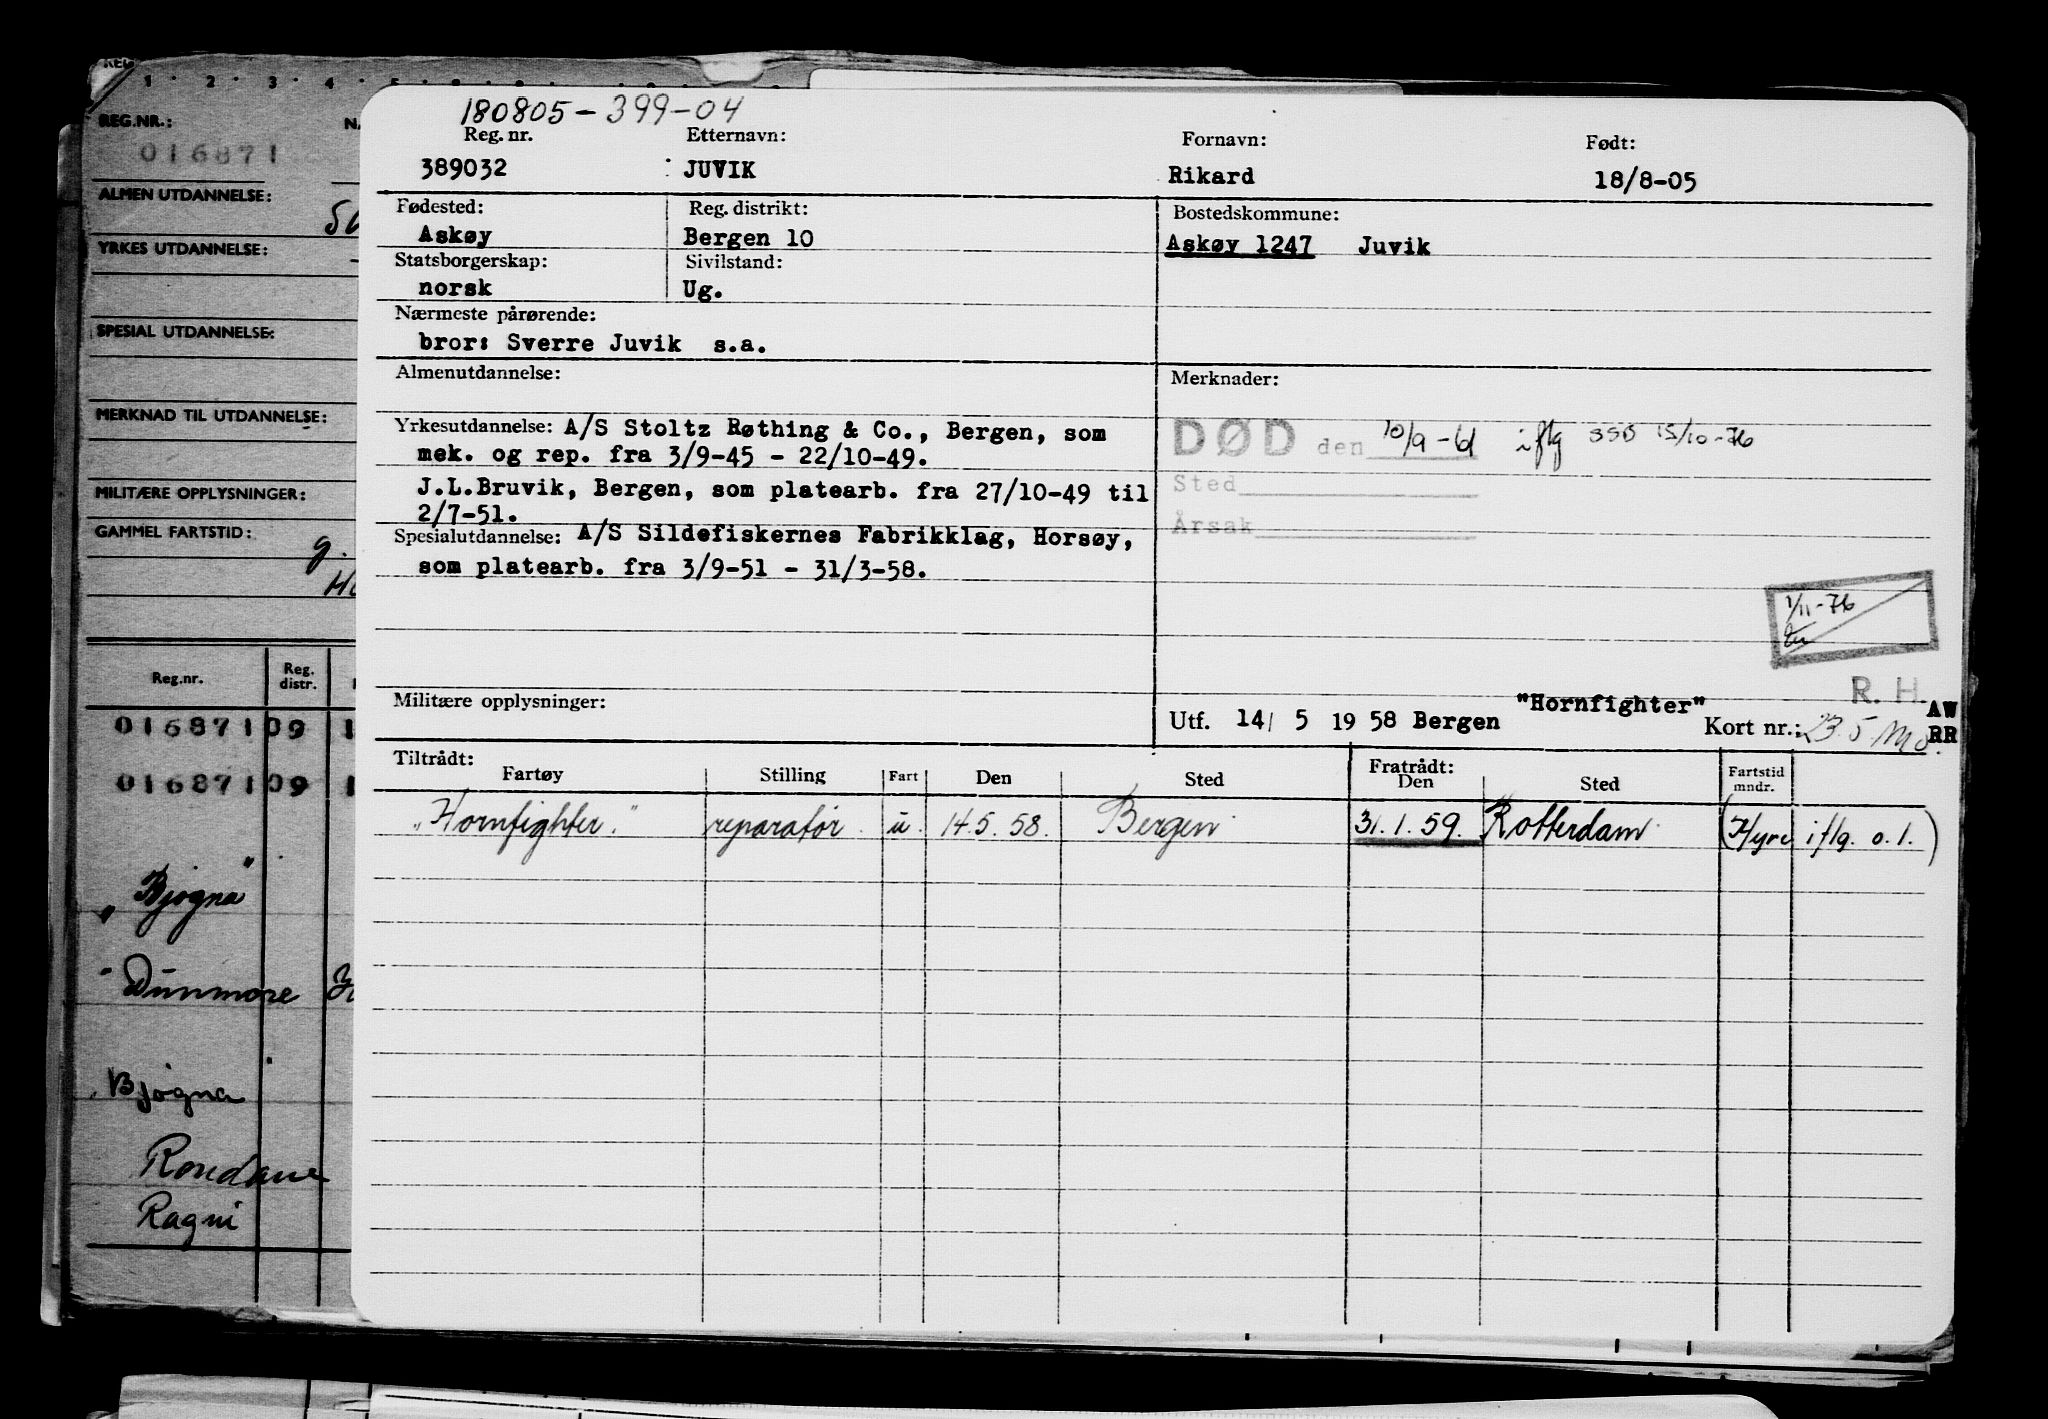 REG.NR.:
016871
ALMEN UTDANNELSE:
YRKES UTDANNELSE:
SPESIAL UTDANNELSE:
MERKNAD TIL UTDANNELSE:
MILITÆRE OPPLYSNINGER:
GAMMEL FARTSTID: g.
Reg.nr. Reg. distr.
016871 09 1
016871 09 1
"Bjogna"
"Dunmore
Bjogna
Rondane
Ragni
180805-399-04
Reg. nr. Etternavn: Fornavn: Født:
389032 JUVIK Rikard 18/8-05
Fødested: Reg. distrikt: Bostedskommune:
Askøy Bergen 10 Askøy 1247 Juvik
Statsborgerskap: Sivilstand:
norsk Ug.
Nærmeste pårørende:
bror: Sverre Juvik s.a.
Almenutdannelse: Merknader:
Yrkesutdannelse: A/S Stoltz Røthing & Co., Bergen, som
mek. og rep. fra 3/9-45 - 22/10-49.
J.L.Bruvik, Bergen, som platearb. fra 27/10-49 til
2/7-51.
Spesialutdannelse: A/S Sildefiskernes Fabrikklag, Horsøy,
som platearb. fra 3/9-51 - 31/3-58.
DØD den 10/9-61 iflg SSB 15/10-76
Sted
Årsak
1/11-76
R. H.
Militære opplysninger:
"Hornfighter" AW
Utf. 14/ 5 19 58 Bergen Kort nr.: 23.5. RR
Tiltrådt: Fratrådt:
Fartøy Stilling Fart Den Sted Den Sted Fartstid mndr.
"Hornfighter." reparatør. u. 14.5.58. Bergen 31.1.59. Rotterdam. (Hyre iflg. o.l.)